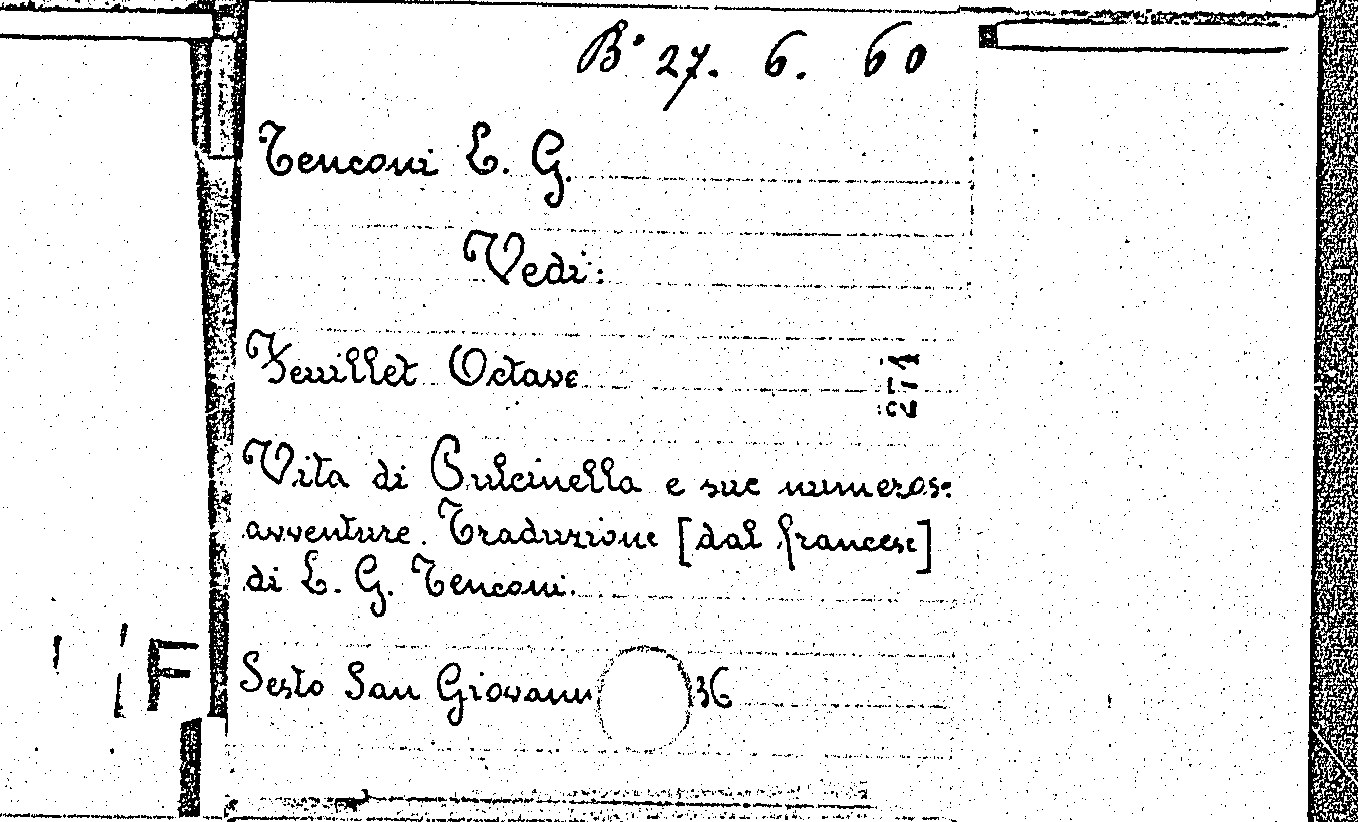 B° 27. 6. 60
Tenconi L. G.
Vedi:
Feuillet Octave
271
Vita di Pulcinella e sue numerose
avventure. Traduzione [dal francese]
di L. G. Tenconi.
Sesto San Giovanni 36
F